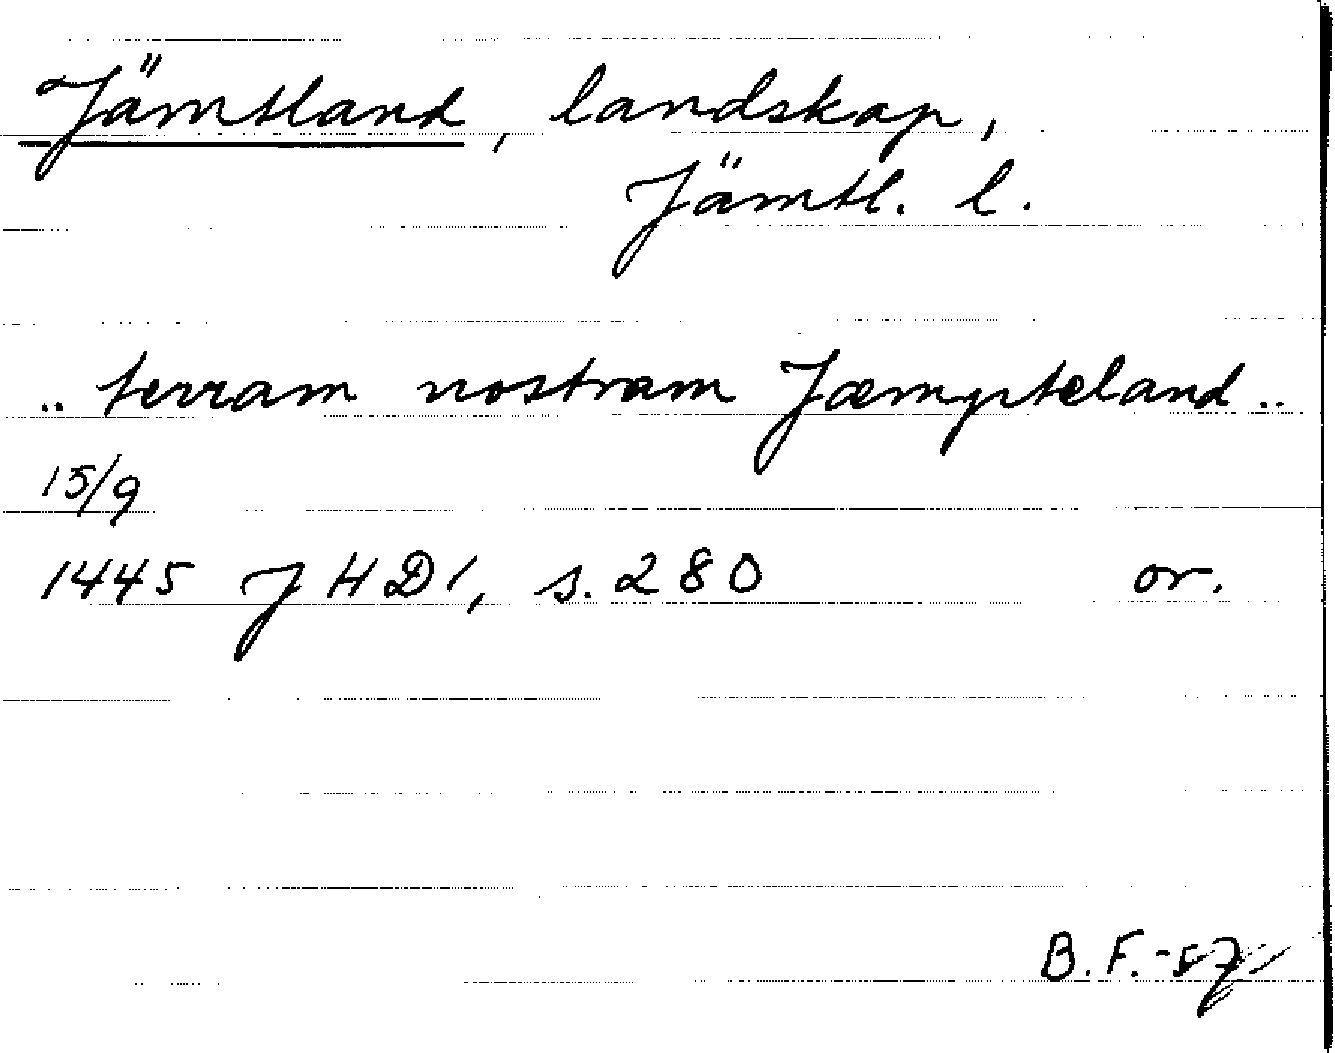 Jämtland, landskap,
Jämtl. l.
.. terram nostram Jæmpteland ..
15/9
1445 JHD1, s. 280 or.
B.F.-57